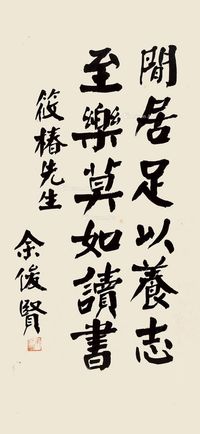 閒居足以養志
至樂莫如讀書
筱椿先生
余俊賢